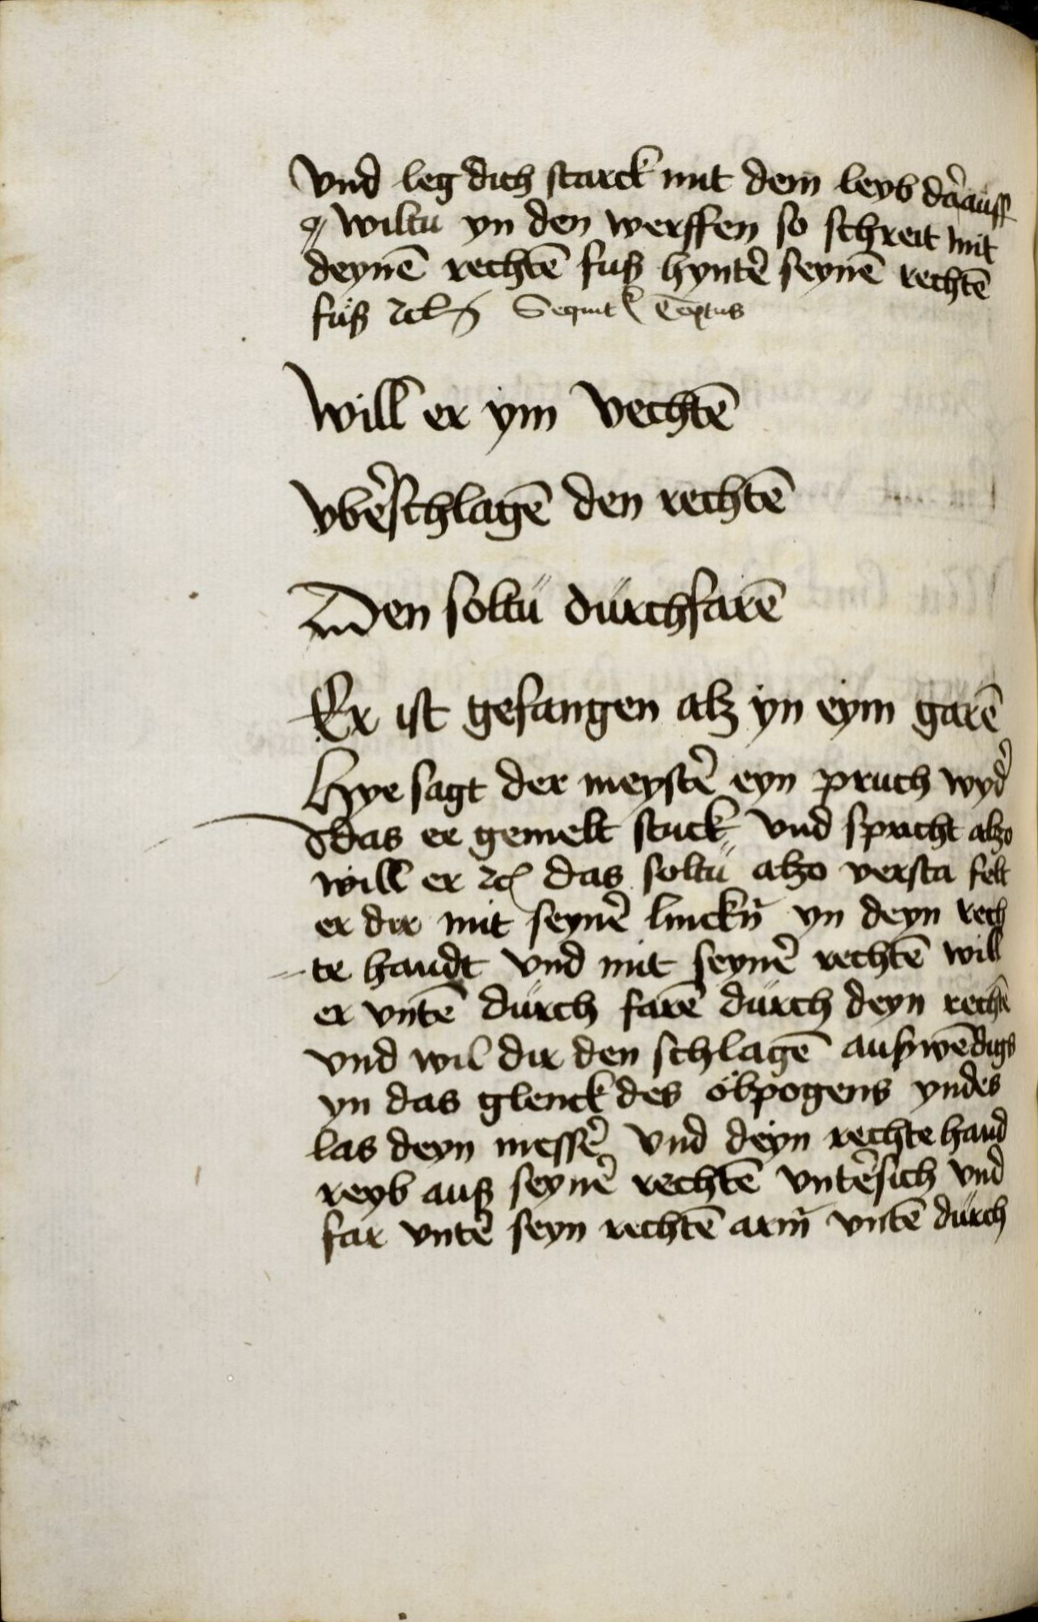 vnd leg dich starck mit dem leyb dar̀auff
wiltu yn den werffen so schreit mit
deynē rechtē fuß hyntè seynē rechtē
fuß ⁊cꝉ Sequit᷑ Textus
will er ym vechtē
vbèschlagē den rechtē
Den soltu durchfarē
Er ist gefangen alz yn eym garē
Hye sagt der meystè eyn pruch wyd̀
das er gemelt stuck vnd spricht alzo
will er ⁊c das soltu alzo versta felt
er dir mit seynè linckn̄ yn deyn rech
te handt vnd mit seynè rechtē will
er vntē durch farē durch deyn rechē
vnd wil dir den schlagē außwēdigs
yn das glenck des ölpogens yndes
las deyn messè vnd deyn rechte hand
reyb auß seynè rechtē vntèsich vnd
far vntè seyn rechtē arm̄ vntē durch